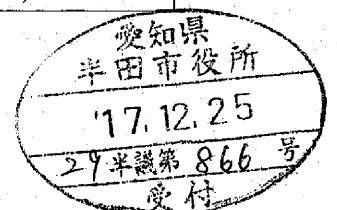 愛知県
半田市役所
'17.12.25
29半議第 866 号
受付